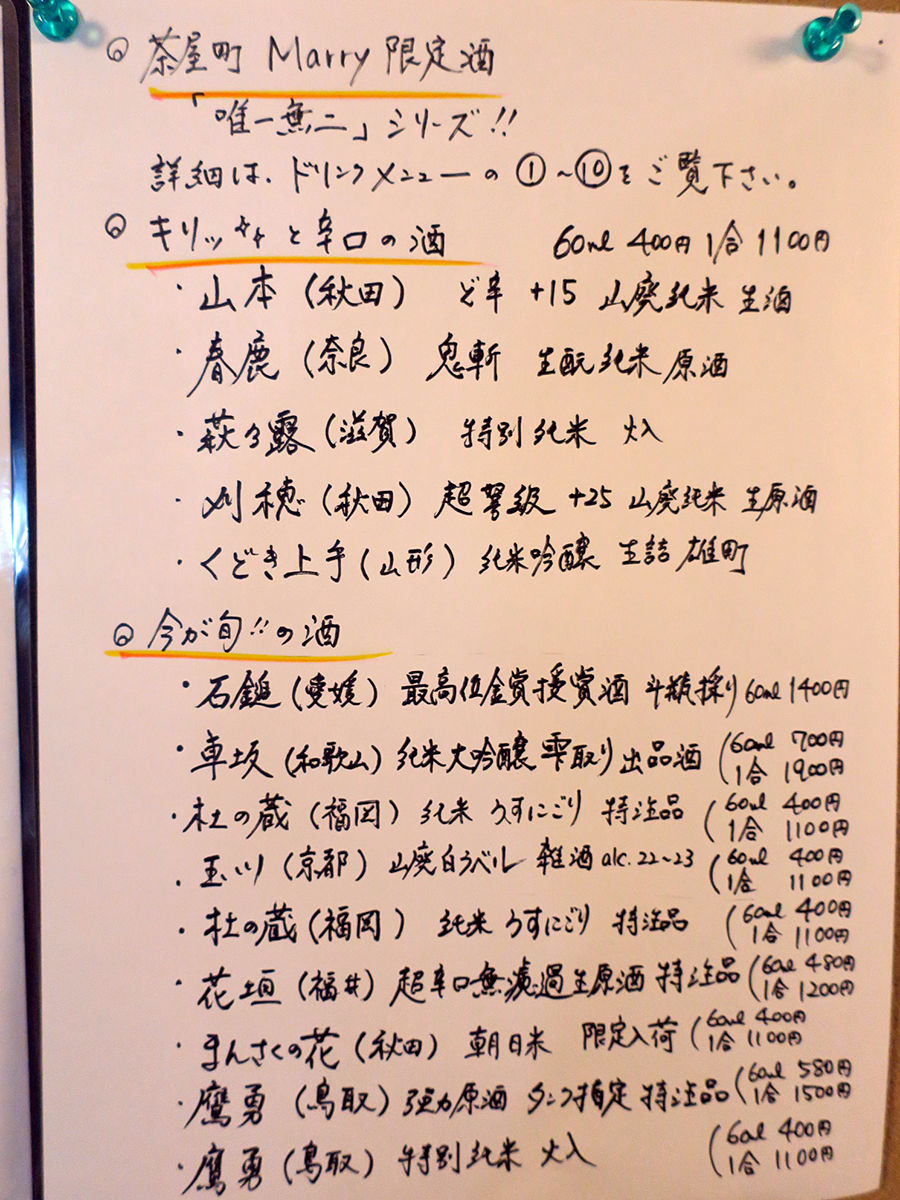 ◎ 茶屋町 Marry 限定酒
「唯一無二」シリーズ!!
詳細は、ドリンクメニューの①～⑩をご覧下さい。
◎ キリッッと辛口の酒 60ml 400円 1合 1100円
・山本（秋田） ど辛 +15 山廃純米 生酒
・春鹿（奈良） 鬼斬 生酛純米 原酒
・萩乃露（滋賀） 特別純米 火入
・刈穂（秋田） 超弩級 +25 山廃純米 生原酒
・くどき上手（山形） 純米吟醸 生詰 雄町
◎ 今が旬!!の酒
・石鎚（愛媛） 最高位金賞授賞酒 斗瓶採り 60ml 1400円
・車坂（和歌山） 純米大吟醸 雫取り 出品酒 （60ml 700円 1合 1900円
・杜の蔵（福岡） 純米 うすにごり 特注品 （60ml 400円 1合 1100円
・玉川（京都） 山廃白ラベル 雑酒 alc.22～23 （60ml 400円 1合 1100円
・杜の蔵（福岡） 純米 うすにごり 特注品 （60ml 400円 1合 1100円
・花垣（福井） 超辛口無濾過生原酒 特注品 （60ml 480円 1合 1200円
・まんさくの花（秋田） 朝日米 限定入荷 （60ml 400円 1合 1100円
・鷹勇（鳥取） 強力原酒 タンク指定 特注品 （60ml 580円 1合 1500円
・鷹勇（鳥取） 特別純米 火入 （60ml 400円 1合 1100円